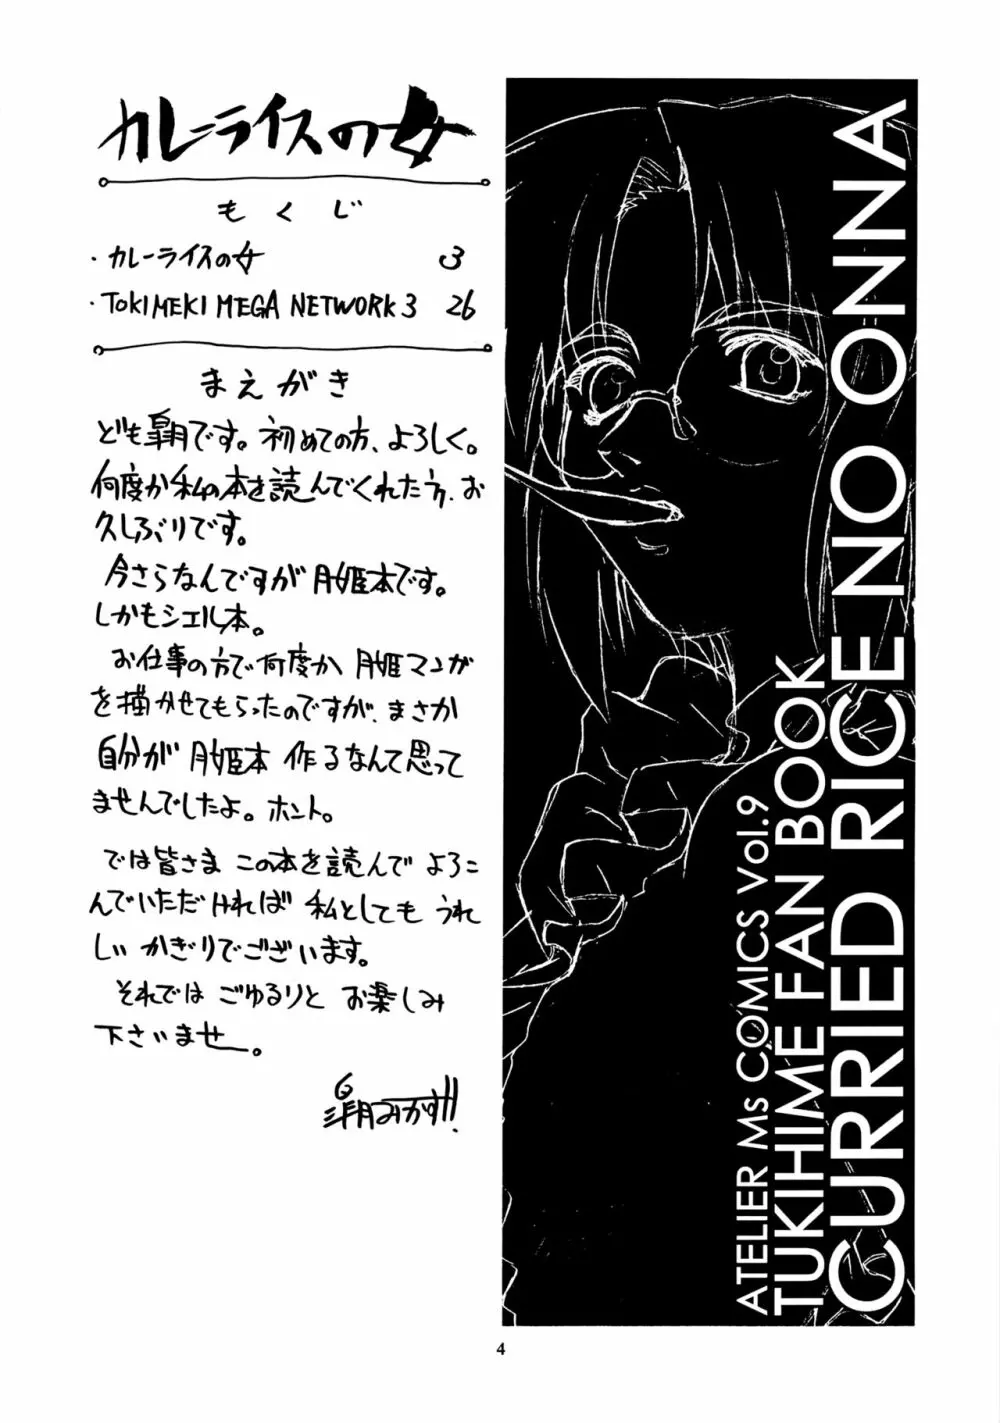 カレーライスの女
もくじ
・カレーライスの女 3
・TOKIMEKI MEGA NETWORK 3 26
まえがき
ども皐月です。初めての方、よろしく。
何度か私の本を読んでくれた方、お
久しぶりです。
今さらなんですが月姫本です。
しかもシエル本。
お仕事の方で何度か月姫マンガ
を描かせてもらったのですが、まさか
自分が月姫本作るなんて思って
ませんでしたよ。ホント。
では皆さまこの本を読んでよろこ
んでいただければ私としてもうれ
しいかぎりでございます。
それではごゆるりとお楽しみ
下さいませ。
皐月みかず!!
ATELIER Ms COMICS Vol.9
TUKIHIME FAN BOOK
CURRIED RICE NO ONNA
4